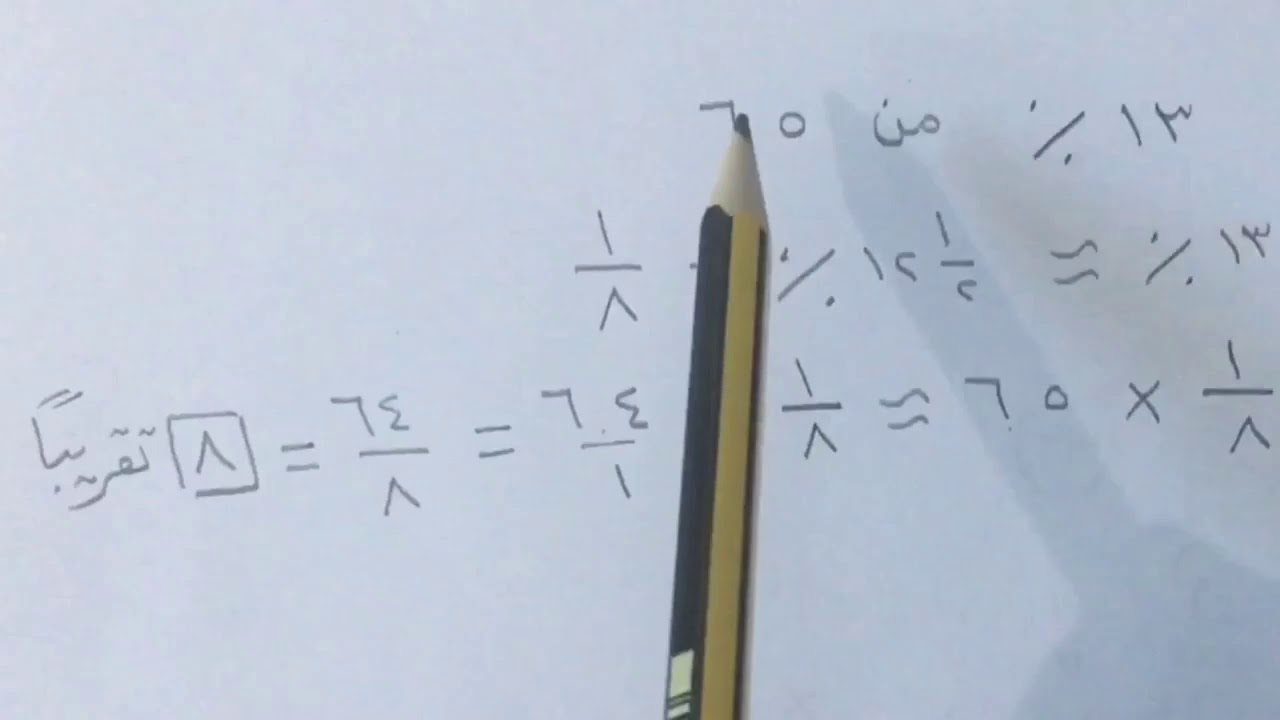 ١٣ ٪ من ٦٥
١٣ ٪ ≈ ١٢ ١/٢ ٪ = ١/٨
١/٨ × ٦٥ ≈ ١/٨ ٦٤/١ = ٦٤/٨ = ٨ تقريباً